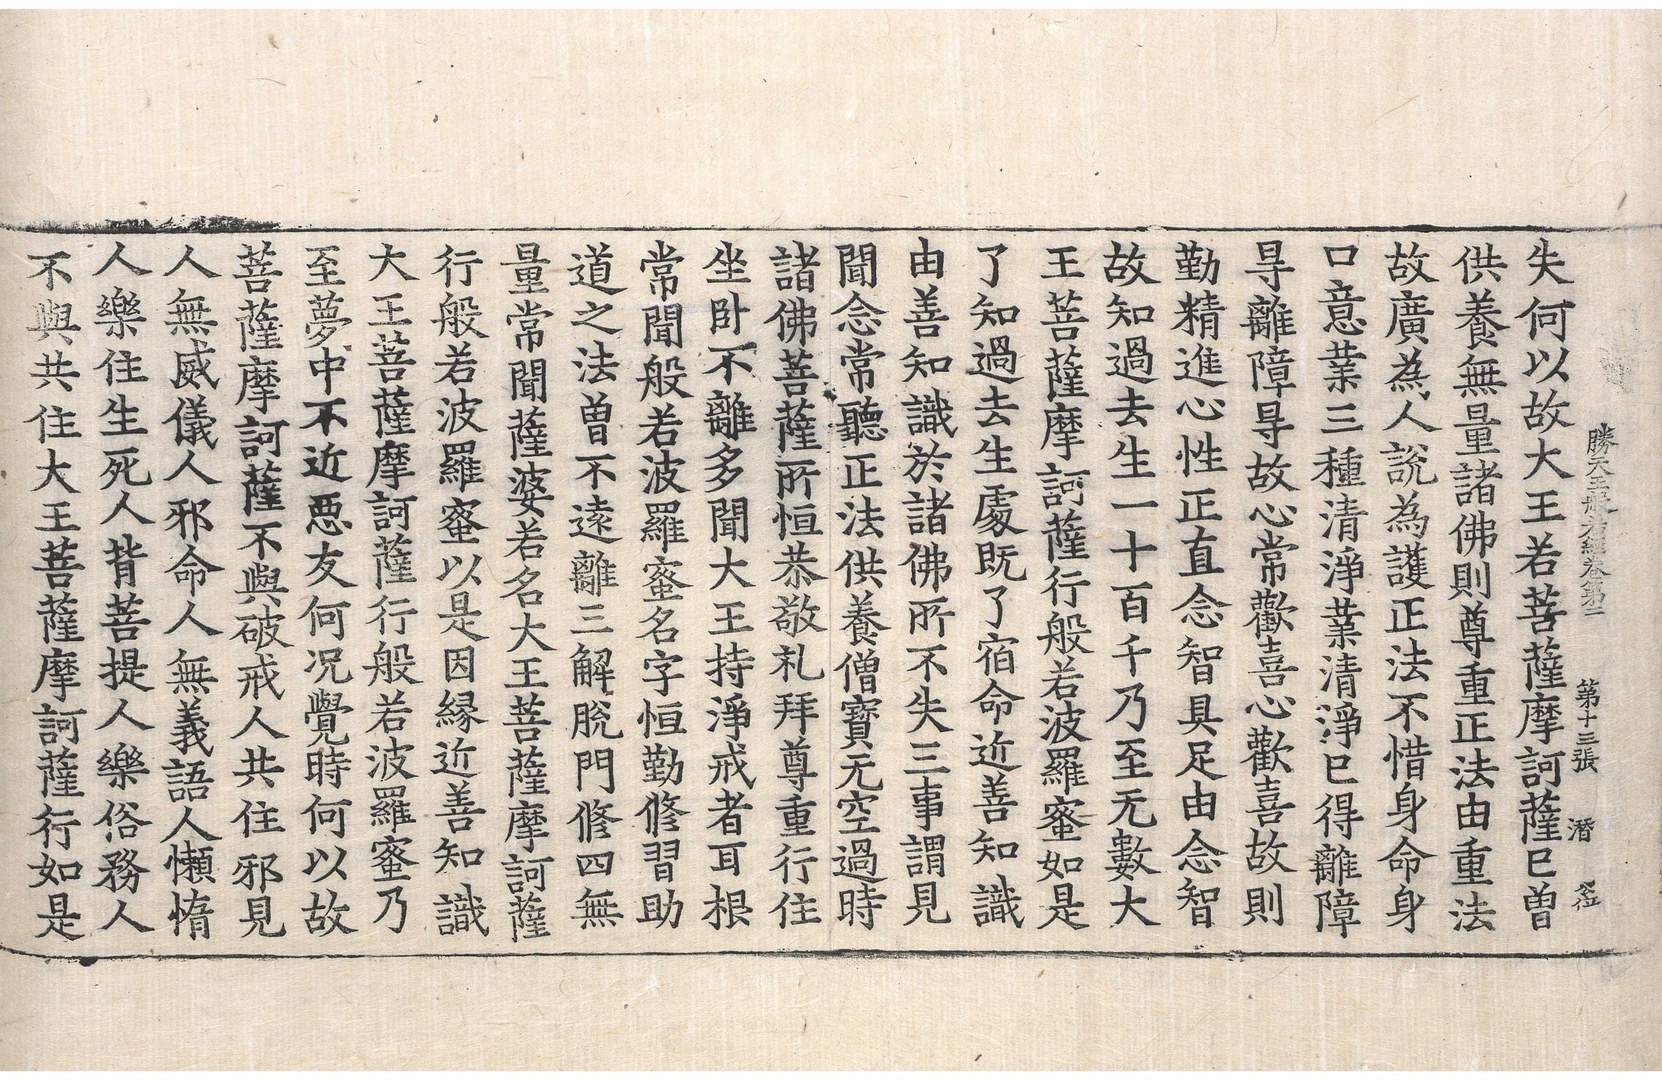 勝天王般若經卷第二　第十三張　潛
失何以故大王若菩薩摩訶薩已曾
供養無量諸佛則尊重正法由重法
故廣為人說為護正法不惜身命身
口意業三種清淨業清淨已得離障
㝵離障㝵故心常歡喜心歡喜故則
勤精進心性正直念智具足由念智
故知過去生一十百千乃至无數大
王菩薩摩訶薩行般若波羅蜜如是
了知過去生處既了宿命近善知識
由善知識於諸佛所不失三事謂見
聞念常聽正法供養僧寶无空過時
諸佛菩薩所恒恭敬礼拜尊重行住
坐卧不離多聞大王持淨戒者耳根
常聞般若波羅蜜名字恒勤修習助
道之法曾不遠離三解脫門修四無
量常聞薩婆若名大王菩薩摩訶薩
行般若波羅蜜以是因縁近善知識
大王菩薩摩訶薩行般若波羅蜜乃
至夢中不近惡友何況覺時何以故
菩薩摩訶薩不與破戒人共住邪見
人無威儀人邪命人無義語人懶惰
人樂住生死人背菩提人樂俗務人
不與共住大王菩薩摩訶薩行如是